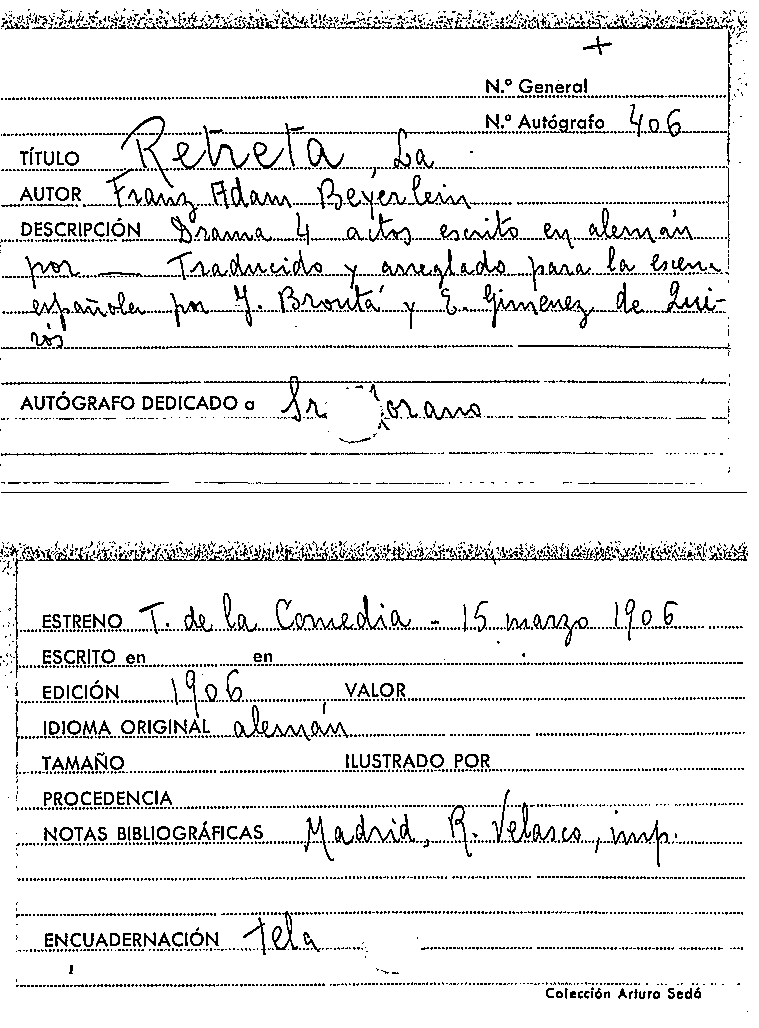 +
N.º General
N.º Autógrafo 406
TÍTULO Retreta, La
AUTOR Franz Adam Beyerlein
DESCRIPCIÓN Drama 4 actos escrito en alemán
por — Traducido y arreglado para la escena
española por J. Broutá y E. Gimenez de Qui-
rós
AUTÓGRAFO DEDICADO a Sr orano
ESTRENO T. de la Comedia - 15 marzo 1906
ESCRITO en en
EDICIÓN 1906 VALOR
IDIOMA ORIGINAL alemán
TAMAÑO ILUSTRADO POR
PROCEDENCIA
NOTAS BIBLIOGRÁFICAS Madrid, R. Velasco, imp.
ENCUADERNACIÓN tela
Colección Arturo Sedó